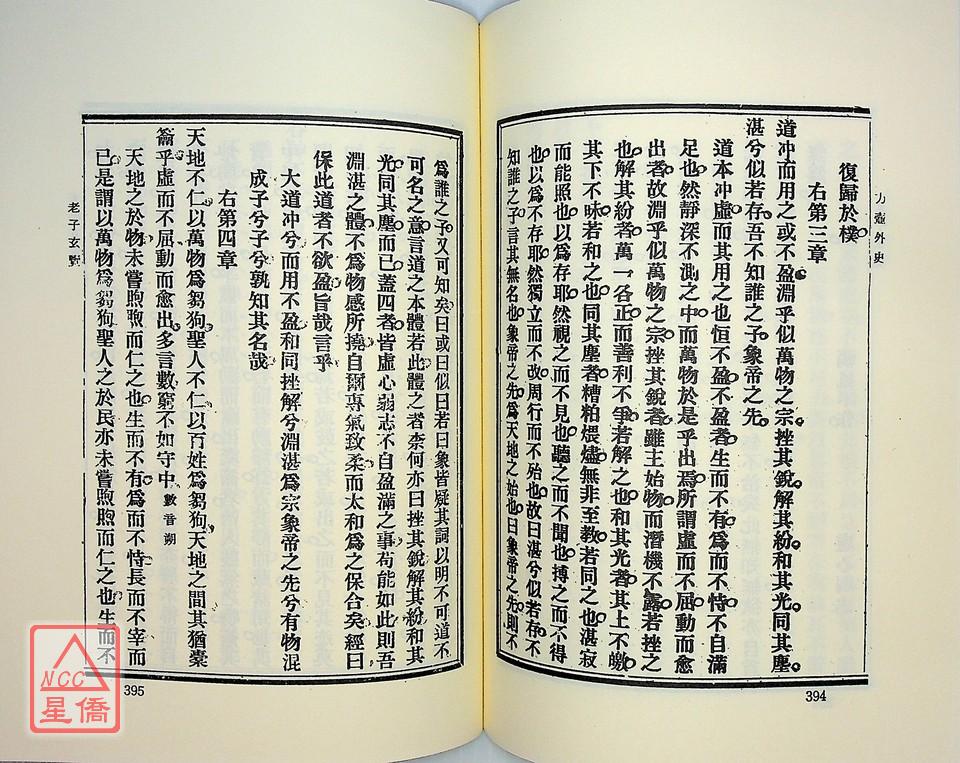 方壺外史
復歸於樸
右第三章
道冲而用之或不盈淵乎似萬物之宗挫其銳解其紛和其光同其塵
湛兮似若存吾不知誰之子象帝之先
道本冲虛而其用之也恒不盈不盈者生而不有爲而不恃不自滿
足也然靜深不測之中而萬物於是乎出焉所謂虛而不屈動而愈
出者故淵乎似萬物之宗挫其銳者雖主始物而潛機不露若挫之
也解其紛者萬一各正而善利不爭若解之也和其光者其上不皦
其下不昧若和之也同其塵者糟粕煨燼無非至教若同之也湛寂
而能照也以爲存耶然視之而不見也聽之而不聞也搏之而不得
也以爲不存耶然獨立而不改周行而不殆也故曰湛兮似若存不
知誰之子言其無名也象帝之先爲天地之始也曰象帝之先則不
394
爲誰之子又可知矣曰或曰似曰若曰象皆疑其詞以明不可道不
可名之意言道之本體若此體之者柰何亦曰挫其銳解其紛和其
光同其塵而已蓋四者皆虛心弱志不自盈滿之事苟能如此則吾
淵湛之體不爲物感所撓自爾專氣致柔而太和爲之保合矣經曰
保此道者不欲盈旨哉言乎
大道冲兮而用不盈和同挫解兮淵湛爲宗象帝之先兮有物混
成子兮子兮孰知其名哉
右第四章
天地不仁以萬物爲芻狗聖人不仁以百姓爲芻狗天地之間其猶橐
籥乎虛而不屈動而愈出多言數窮不如守中數音朔
天地之於物未嘗煦煦而仁之也生而不有爲而不恃長而不宰而
已是謂以萬物爲芻狗聖人之於民亦未嘗煦煦而仁之也生而不
老子玄覽
395
NCC
星僑